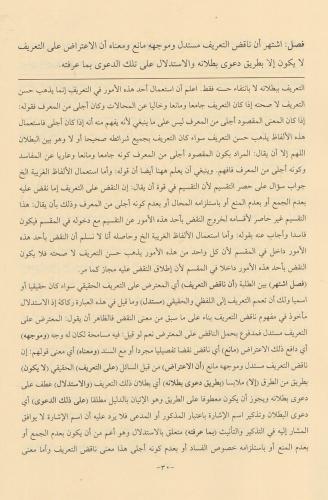 فصل: اشتهر أن ناقض التعريف مستدل وموجهه مانع ومعناه أن الاعتراض على التعريف
لا يكون إلا بطريق دعوى بطلانه والاستدلال على تلك الدعوى بما عرفته.
التعريف ببطلانه لا بانتفاء حسنه فقط. اعلم أن استعمال أحد هذه الأمور في التعريف إنما يذهب حسن
التعريف لا صحته إذا كان التعريف جامعا ومانعا وخاليا عن المحالات وكان أجلى من المعرف فقوله:
إذا كان المعنى المقصود أجلى من المعرف ليس على ما ينبغي لأنه يفهم منه أنه إذا كان فاسدا باستعمال
هذه الألفاظ يذهب حسن التعريف سواء كان التعريف بجميع شرائطه صحيحا أو لا وهو بين البطلان
اللهم إلا أن يقال: المراد بكون المقصود أجلى من المعرف كونه جامعا ومانعا وعاريا عن المفاسد
وكونه أجلى من المعرف فافهم. وينبغي أن يعلم ههنا أيضا أن قوله: وأما استعمال الألفاظ الغريبة الخ
جواب سؤال على حصر التقسيم لأن التقسيم في قوة أن يقال: إن النقض على التعريف إما نقض عليه
بعدم الجمع أو بعدم المنع أو باستلزامه المحال أو بعدم كونه أجلى من المعرف وذلك بأن يقال: هذا
التقسيم غير حاصر لأقسامه لخروج النقض بأحد هذه الأمور عن التقسيم مع دخوله في المقسم فيكون
فاسدا وأجاب عنه بقوله: وأما استعمال الألفاظ الغريبة الخ وحاصله أنا لا نسلم أن النقض بأحد هذه
الأمور داخل في المقسم لأن كل واحد من هذه الأمور يذهب حسن التعريف لا صحته فلا يكون
النقض بأحد هذه الأمور داخلا في المقسم لأن إطلاق النقض عليه مجاز كما مر.
(فصل اشتهر) بين الطلبة (أن ناقض التعريف) أي المعترض على التعريف الحقيقي سواء كان حقيقيا أو
اسميا ولك أن تعمم التعريف إلى اللفظي والحقيقي (مستدل) وما قيل في هذه العبارة ركاكة إذ الاستدلال
مأخوذ في مفهوم ناقض التعريف بناء على ما سبق من معنى النقض فالظاهر أن يقول: المعترض على
التعريف مستدل فمدفوع بحمل الناقض على المعترض نعم لو قيل: فيه مسامحة لكان له وجه (وموجهه)
أي دافع ذلك الاعتراض (مانع) أي ناقض نقضا تفصيليا مجردا أو مع السند (ومعناه) أي معنى قولهم: إن
ناقض التعريف مستدل وموجهه مانع (أن الاعتراض) من قبل السائل (على التعريف) الحقيقي (لا يكون)
بطريق من الطرق (إلا) ملابسا (بطريق دعوى بطلانه) أي بطلان ذلك التعريف (والاستدلال) عطف على
دعوى بطلانه ويجوز أن يكون معطوفا على الطريق وهو الإتيان بالدليل مطلقا (على ذلك الدعوى) أي
دعوى البطلان وتذكير اسم الإشارة باعتبار المذكور أو المدعى فلا يرد عليه أن اسم الإشارة لا يوافق
المشار إليه في التذكير والتأنيث (بما عرفته) متعلق بالاستدلال وهو أعم من أن يكون بعدم الجمع أو
بعدم المنع أو باستلزامه خصوص الفساد أو بعدم كونه أجلى هذا معنى ناقض التعريف وأما معنى
-٣٠-